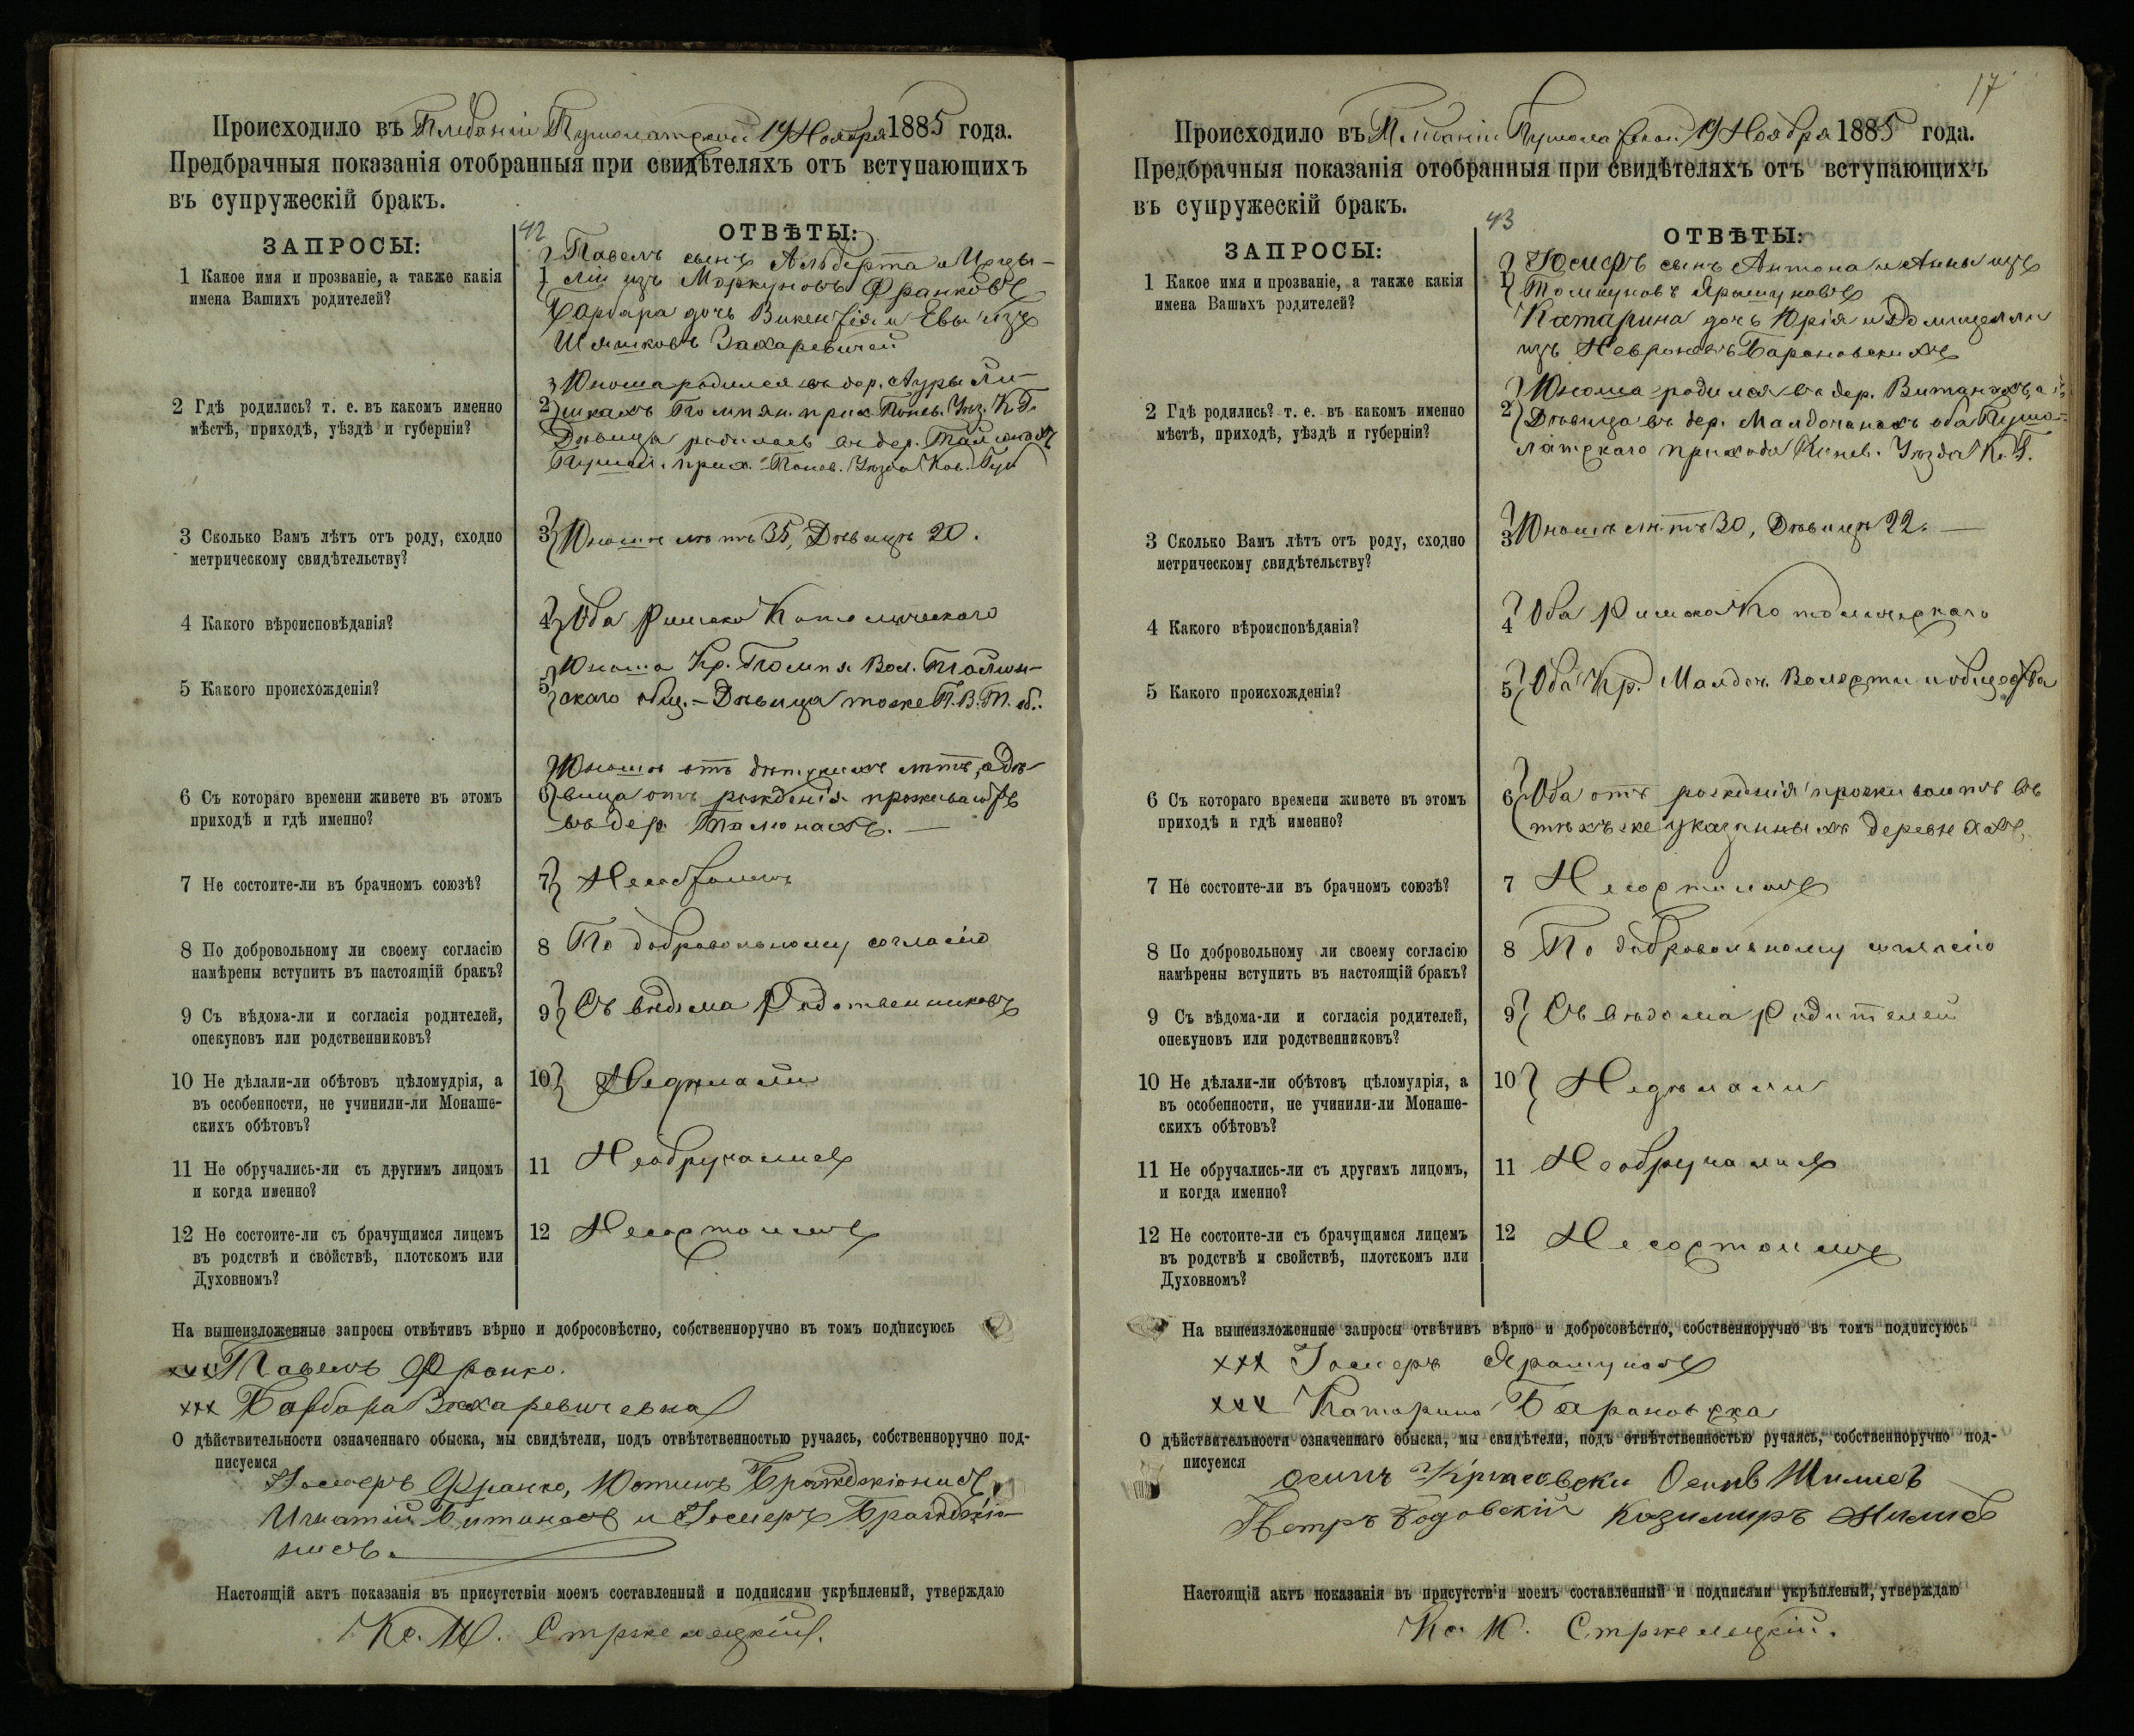 Происходило въ Плебаніи 19 Ноября 1885 года.
Предбрачныя показанія отобранныя при свидѣтеляхъ отъ вступающихъ
въ супружескій бракъ.
42
ЗАПРОСЫ:
ОТВѢТЫ:
1 Какое имя и прозваніе, а также какія
имена Вашихъ родителей?
1 Павелъ сынъ Альберта и
изъ Моркуновъ Франковъ
Барбара дочь Викентія и Евы изъ
Шяшковъ Захаревичей
2 Гдѣ родились? т. е. въ какомъ именно
мѣстѣ, приходѣ, уѣздѣ и губерніи?
2 Юноша родился въ дер.
прих. Понев. Уѣз. К. Г.
Дѣвица родилась въ дер.
прих. Понев. Уѣзда Ков. Губ
3 Сколько Вамъ лѣтъ отъ роду, сходно
метрическому свидѣтельству?
3 Юношѣ лѣтъ 35, Дѣвицѣ 20.
4 Какого вѣроисповѣданія?
4 Оба Римско Католическаго
5 Какого происхожденія?
5 Юноша Кр. Помпя. Вол. Талюн-
скаго общ. – Дѣвица тоже П. В. Т. об.
6 Съ котораго времени живете въ этомъ
приходѣ и гдѣ именно?
6 Юноша отъ дѣтскихъ лѣтъ, а Дѣ-
вица отъ рожденія проживаютъ
въ дер. Талюнахъ. —
7 Не состоите-ли въ брачномъ союзѣ?
7 Несостоимъ
8 По добровольному ли своему согласію
намѣрены вступить въ настоящій бракъ?
8 По добровольному согласію
9 Съ вѣдома-ли и согласія родителей,
опекуновъ или родственниковъ?
9 Съ вѣдома Родственниковъ
10 Не дѣлали-ли обѣтовъ цѣломудрія, а
въ особенности, не учинили-ли Монаше-
скихъ обѣтовъ?
10 Недѣлали
11 Не обручались-ли съ другимъ лицомъ
и когда именно?
11 Необручались
12 Не состоите-ли съ брачущимся лицемъ
въ родствѣ и свойствѣ, плотскомъ или
Духовномъ?
12 Несостоимъ
На вышеизложенные запросы отвѣтивъ вѣрно и добросовѣстно, собственноручно въ томъ подписуюсь
xxx Павелъ Франко.
xxx Барбара Захаревичевна
О дѣйствительности означеннаго обыска, мы свидѣтели, подъ отвѣтственностью ручаясь, собственноручно под-
писуемся
Іосифъ Франко, Юстинъ
Игнатій Битинасъ и Іосифъ
Настоящій актъ показанія въ присутствіи моемъ составленный и подписями укрѣпленый, утверждаю
Кс. М. Стржелецкій.
17
Происходило въ Плебаніи 19 Ноября 1885 года.
Предбрачныя показанія отобранныя при свидѣтеляхъ отъ вступающихъ
въ супружескій бракъ.
43
ЗАПРОСЫ:
ОТВѢТЫ:
1 Какое имя и прозваніе, а также какія
имена Вашихъ родителей?
1 Іосифъ сынъ Антона и Анны изъ
Томкуновъ Ярашуновъ
Катарина дочь Юрія и Домицелли
изъ Барановскихъ
2 Гдѣ родились? т. е. въ какомъ именно
мѣстѣ, приходѣ, уѣздѣ и губерніи?
2 Юноша родился въ дер. а
Дѣвица въ дер. оба Пушо-
латскаго прихода Понев. Уѣзда К. Г.
3 Сколько Вамъ лѣтъ отъ роду, сходно
метрическому свидѣтельству?
3 Юношѣ лѣтъ 30, Дѣвицѣ 22. —
4 Какого вѣроисповѣданія?
4 Оба Римско Католическаго
5 Какого происхожденія?
5 Оба Кр. Малдоч. Волости и общества
6 Съ котораго времени живете въ этомъ
приходѣ и гдѣ именно?
6 Оба отъ рожденія проживаютъ въ
тѣхъ же указанныхъ деревняхъ,
7 Не состоите-ли въ брачномъ союзѣ?
7 Несостоимъ
8 По добровольному ли своему согласію
намѣрены вступить въ настоящій бракъ?
8 По добровольному согласію
9 Съ вѣдома-ли и согласія родителей,
опекуновъ или родственниковъ?
9 Съ вѣдома Родителей
10 Не дѣлали-ли обѣтовъ цѣломудрія, а
въ особенности, не учинили-ли Монаше-
скихъ обѣтовъ?
10 Недѣлали
11 Не обручались-ли съ другимъ лицомъ,
и когда именно?
11 Необручались
12 Не состоите-ли съ брачущимся лицемъ
въ родствѣ и свойствѣ, плотскомъ или
Духовномъ?
12 Несостоимъ
На вышеизложенные запросы отвѣтивъ вѣрно и добросовѣстно, собственноручно въ томъ подписуюсь
xxx Іосифъ Ярашуновъ
xxx Катарина Барановска
О дѣйствительности означеннаго обыска, мы свидѣтели, подъ отвѣтственностью ручаясь, собственноручно под-
писуемся
Осипъ Осипъ
Петръ Казимиръ
Настоящій актъ показанія въ присутствіи моемъ составленный и подписями укрѣпленый, утверждаю
Кс. М. Стржелецкій.